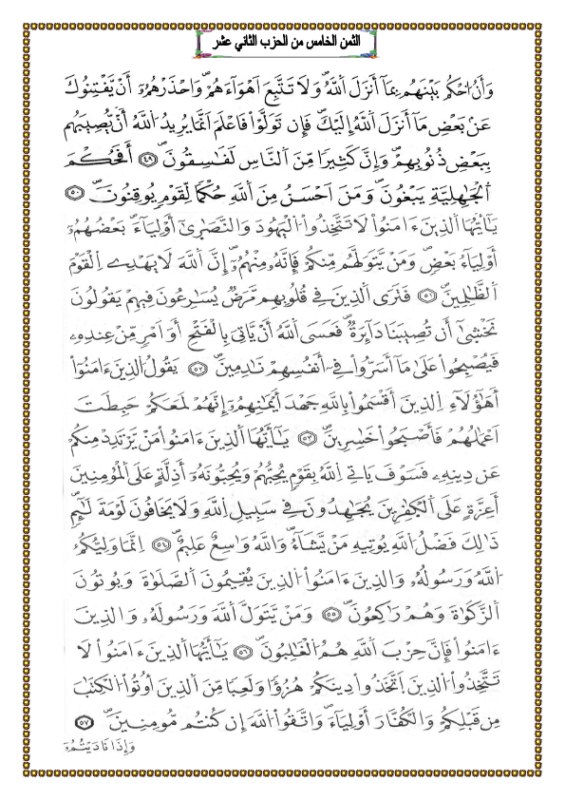 الثمن الخامس من الحزب الثاني عشر
وَأَنُ احْكُم بَيْنَهُم بِمَآ أَنزَلَ اَللَّهُ وَلَا تَتَّبِعَ اَهْوَآءَهُمْ وَاحْذَرْهُمُۥٓ أَنْ يَّفْتِنُوكَ
عَنۢ بَعْضِ مَآ أَنزَلَ اَللَّهُ إِلَيْكَ فَإِن تَوَلَّوْاْ فَاعْلَمَ اَنَّمَا يُرِيدُ اللَّهُ أَنْ يُّصِيبَهُم
بِبَعْضِ ذُنُوبِهِمْ وَإِنَّ كَثِيرًا مِّنَ اَلنَّاسِ لَفَاسِقُونَ ٤٩ أَفَحُكْمَ
اَلْجَٰهِلِيَّةِ يَبْغُونَ وَمَنَ اَحْسَنُ مِنَ اَللَّهِ حُكْمًا لِّقَوْمٍ يُوقِنُونَ ٥٠
يَٰٓأَيُّهَا اَلذِينَ ءَامَنُواْ لَا تَتَّخِذُواْ اُلْيَهُودَ وَالنَّصَٰرَىٰٓ أَوْلِيَآءَ بَعْضُهُمُۥٓ
أَوْلِيَآءُ بَعْضٍ وَمَنْ يَّتَوَلَّهُم مِّنكُمْ فَإِنَّهُۥ مِنْهُمُۥٓ إِنَّ اَللَّهَ لَا يَهْدِے اِلْقَوْمَ
اَلظَّٰلِمِينَ ٥١ فَتَرَى اَلذِينَ فِے قُلُوبِهِم مَّرَضٌ يُسَٰرِعُونَ فِيهِمْ يَقُولُونَ
نَخْشَىٰٓ أَن تُصِيبَنَا دَآئِرَةٌ فَعَسَى اَللَّهُ أَنْ يَّاتِيَ بِالْفَتْحِ أَوَ اَمْرٍ مِّنْ عِندِهِۦ
فَيُصْبِحُواْ عَلَىٰ مَآ أَسَرُّواْ فِےٓ أَنفُسِهِمْ نَٰدِمِينَ ٥٢ يَقُولُ اُلذِينَ ءَامَنُوٓاْ
أَهَٰٓؤُلَآءِ اِلذِينَ أَقْسَمُواْ بِاللَّهِ جَهْدَ أَيْمَٰنِهِمُۥٓ إِنَّهُمْ لَمَعَكُمْ حَبِطَتَ
اَعْمَٰلُهُمْ فَأَصْبَحُواْ خَٰسِرِينَ ٥٣ يَٰٓأَيُّهَا اَلذِينَ ءَامَنُواْ مَنْ يَّرْتَدِدْ مِنكُمْ
عَن دِينِهِۦ فَسَوْفَ يَاتِے اِللَّهُ بِقَوْمٍ يُحِبُّهُمْ وَيُحِبُّونَهُۥٓ أَذِلَّةٍ عَلَى اَلْمُؤْمِنِينَ
أَعِزَّةٍ عَلَى اَلْكَٰفِرِينَ يُجَٰهِدُونَ فِے سَبِيلِ اِللَّهِ وَلَا يَخَافُونَ لَوْمَةَ لَآئِمٍ
ذَٰلِكَ فَضْلُ اُللَّهِ يُوتِيهِ مَنْ يَّشَآءُ وَاللَّهُ وَٰسِعٌ عَلِيمٌ ٥٤ اِنَّمَا وَلِيُّكُمُ
اُللَّهُ وَرَسُولُهُۥ وَالذِينَ ءَامَنُواْ اُلذِينَ يُقِيمُونَ اَلصَّلَوٰةَ وَيُوتُونَ
اَلزَّكَوٰةَ وَهُمْ رَٰكِعُونَ ٥٥ وَمَنْ يَّتَوَلَّ اَللَّهَ وَرَسُولَهُۥ وَالذِينَ
ءَامَنُواْ فَإِنَّ حِزْبَ اَللَّهِ هُمُ اُلْغَٰلِبُونَ ٥٦ يَٰٓأَيُّهَا اَلذِينَ ءَامَنُواْ لَا
تَتَّخِذُواْ اُلذِينَ اَتَّخَذُواْ دِينَكُمْ هُزُؤًا وَلَعِبًا مِّنَ اَلذِينَ أُوتُواْ اُلْكِتَٰبَ
مِن قَبْلِكُمْ وَالْكُفَّارَ أَوْلِيَآءَ وَاتَّقُواْ اُللَّهَ إِن كُنتُم مُّومِنِينَ ٥٧
وَإِذَا نَادَيْتُمُۥٓ